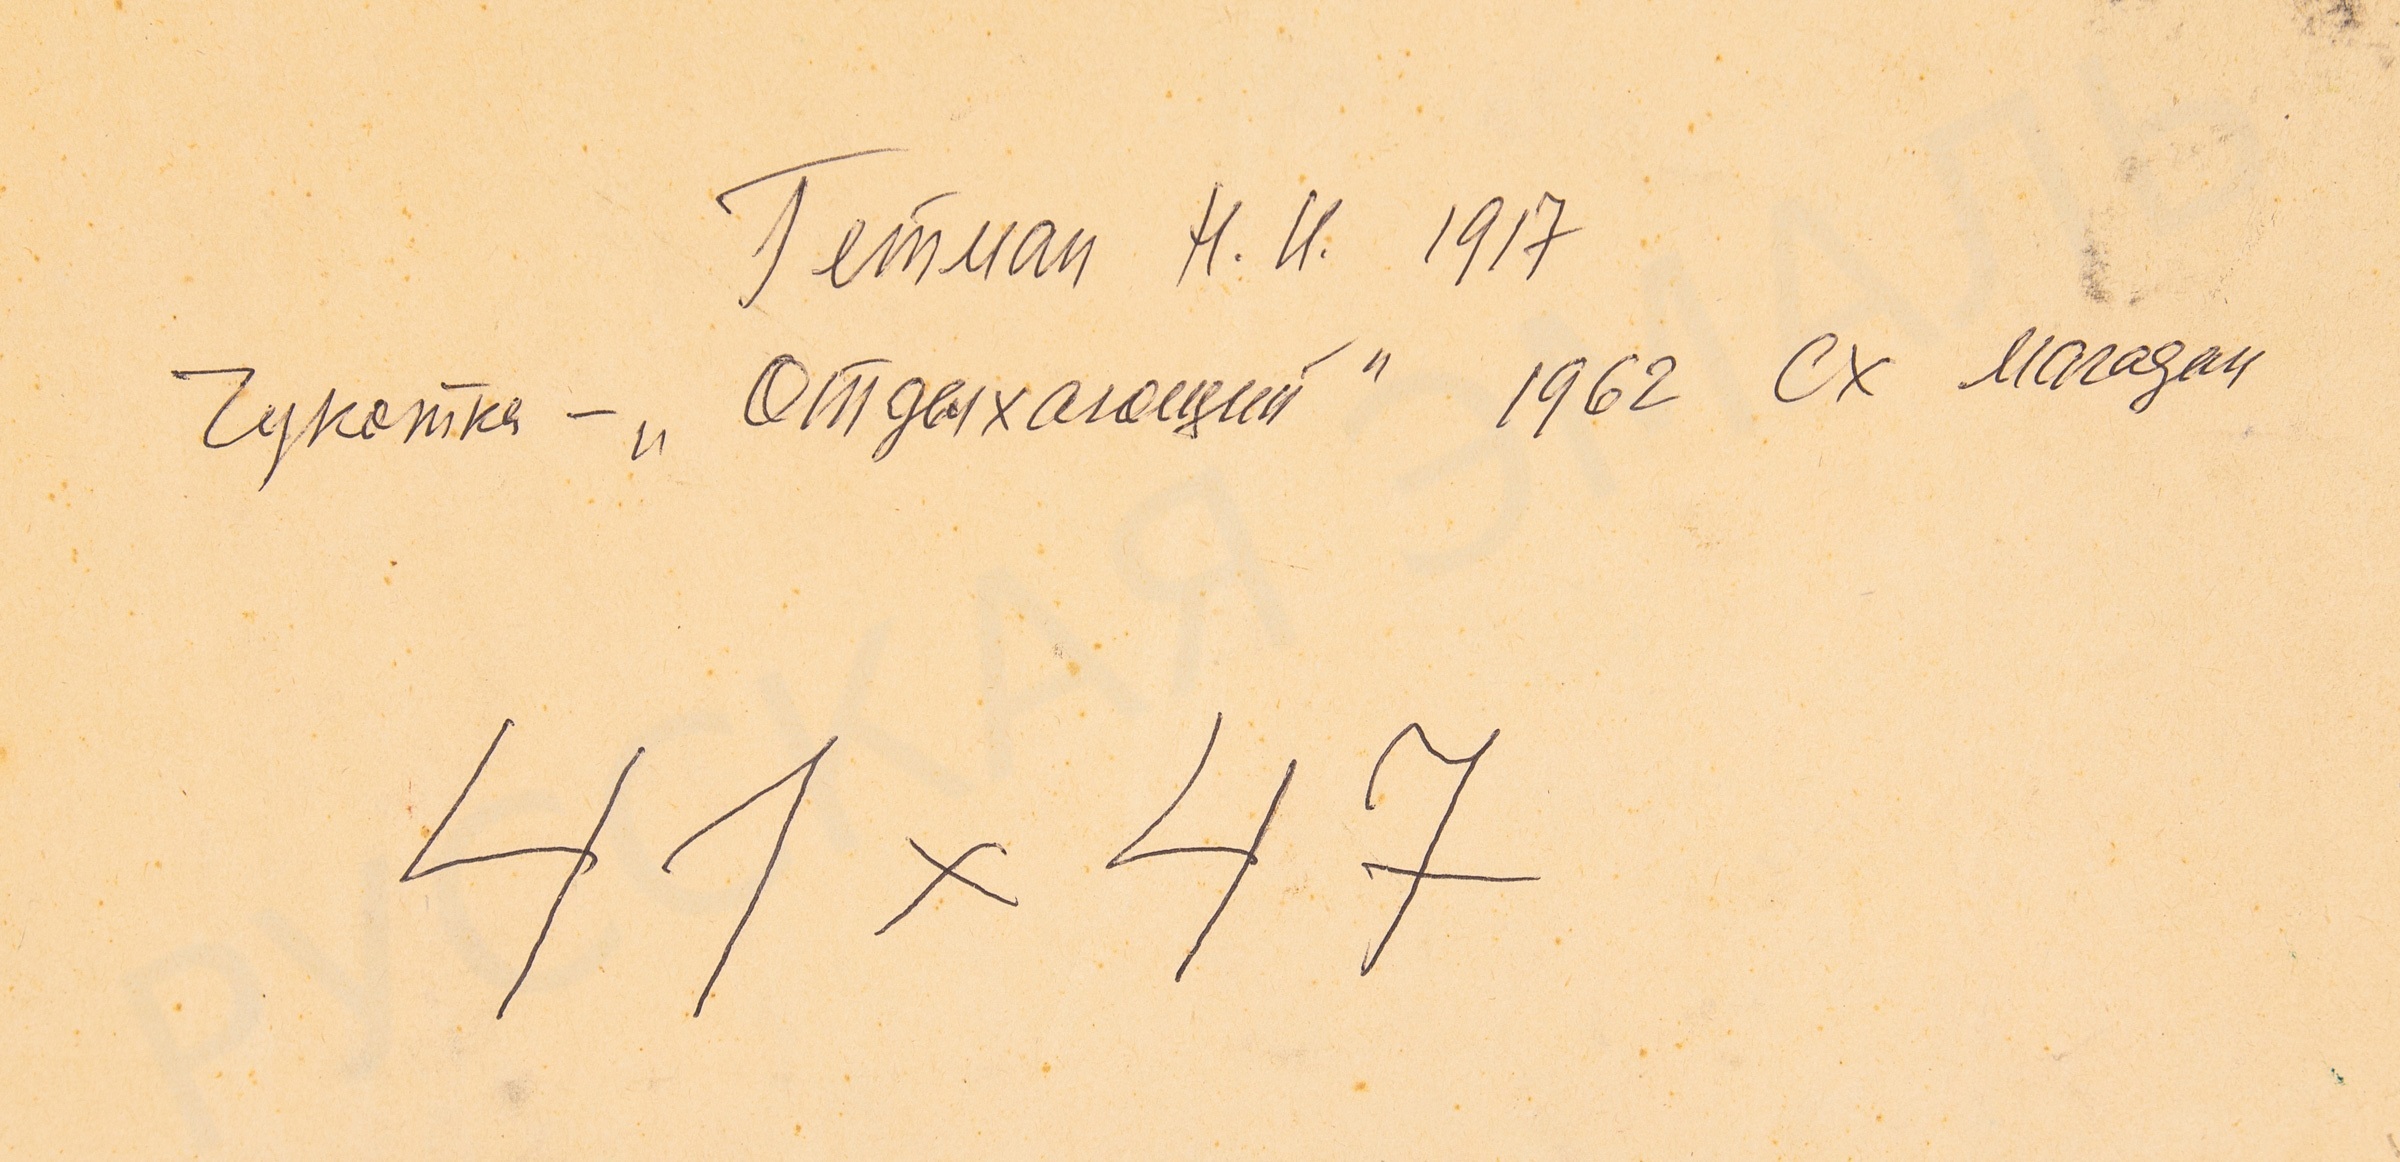 Гетман Н. И. 1917
Чукотка – „Отдыхающий" 1962 СХ Магадан
41 x 47
РУССКАЯ ЭМАЛЬ